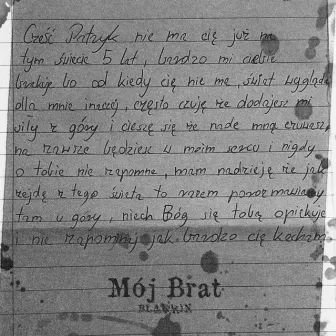 Cześć Patryk nie ma cię już na
tym świecie 5 lat, bardzo mi ciebie
brakuje bo od kiedy cię nie ma, świat wygląda
dla mnie inaczej, często czuję że dodajesz mi
siły z góry i cieszę się że nade mną czuwasz,
na zawsze będziesz w moim sercu i nigdy
o tobie nie zapomne, mam nadzieję że jak
zejdę z tego świata to razem porozmawiamy
tam u góry, niech Bóg się tobą opiekuje
i nie zapominaj jak bardzo cię kocham
Mój Brat